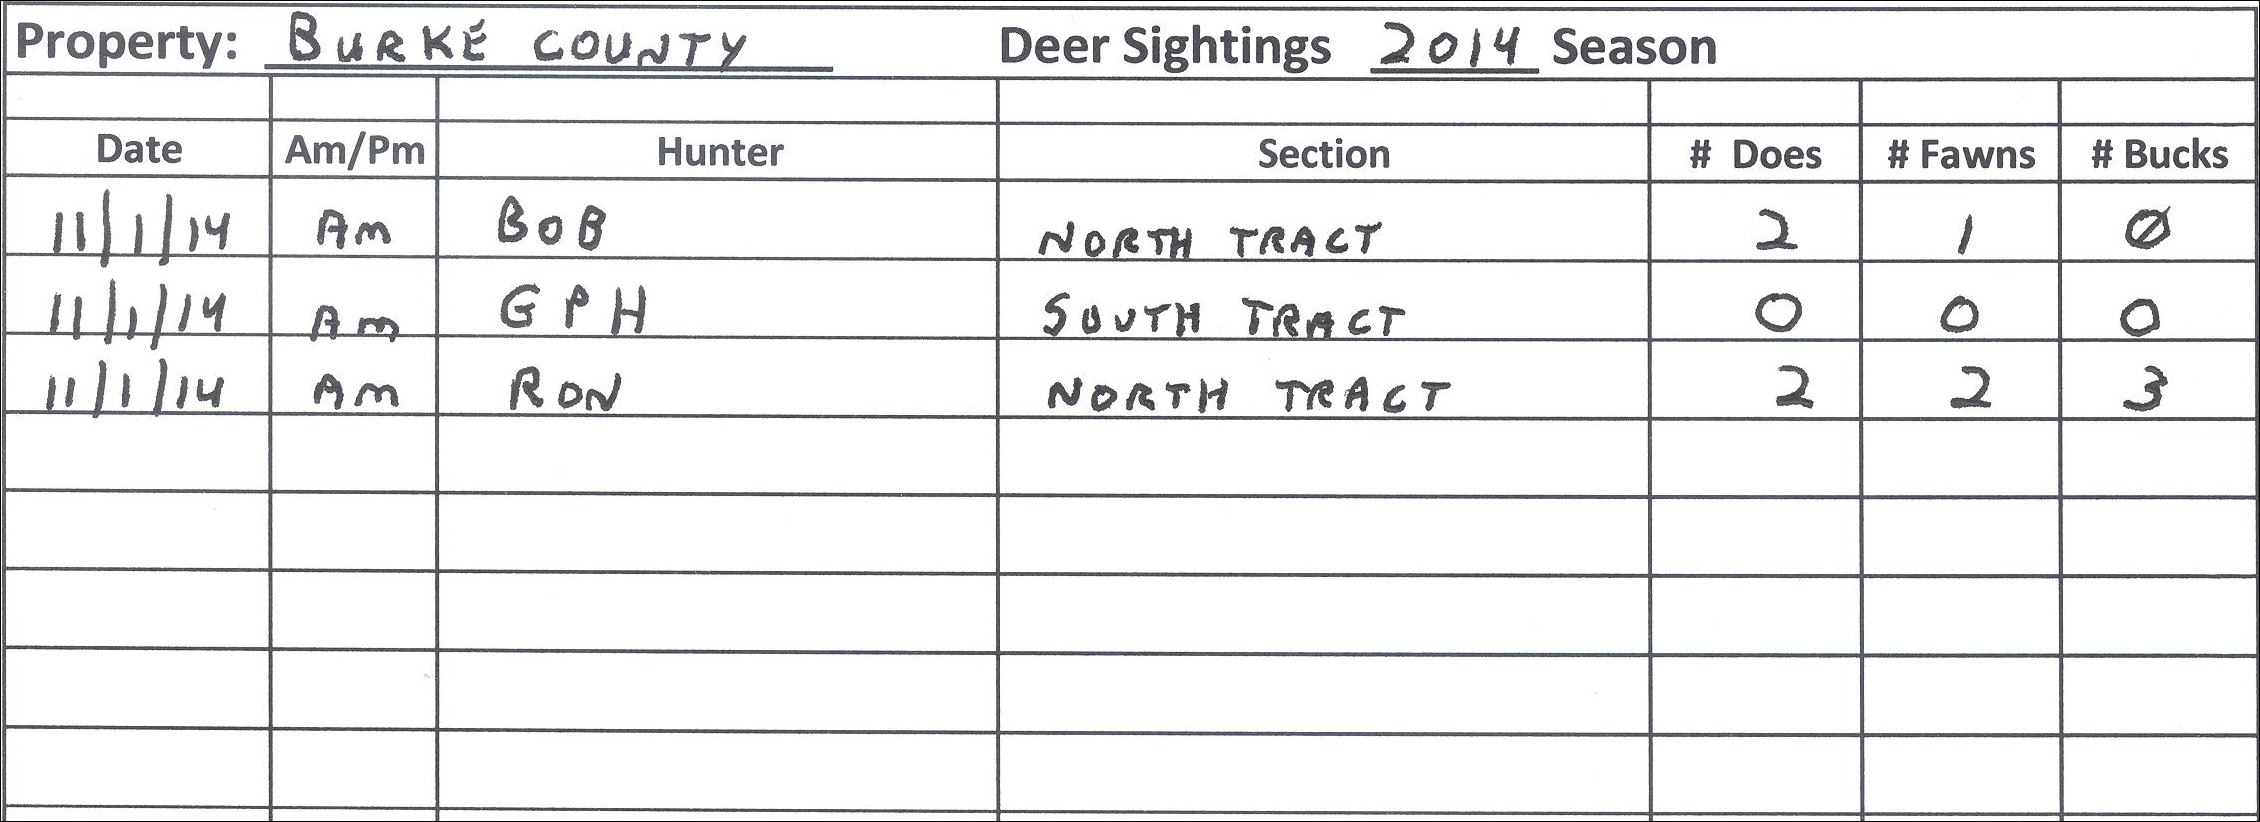 Property: BURKE COUNTY Deer Sightings 2014 Season
Date Am/Pm Hunter Section # Does # Fawns # Bucks
11/1/14 Am BOB NORTH TRACT 2 1 Ø
11/1/14 Am GPH SOUTH TRACT 0 0 0
11/1/14 Am RON NORTH TRACT 2 2 3